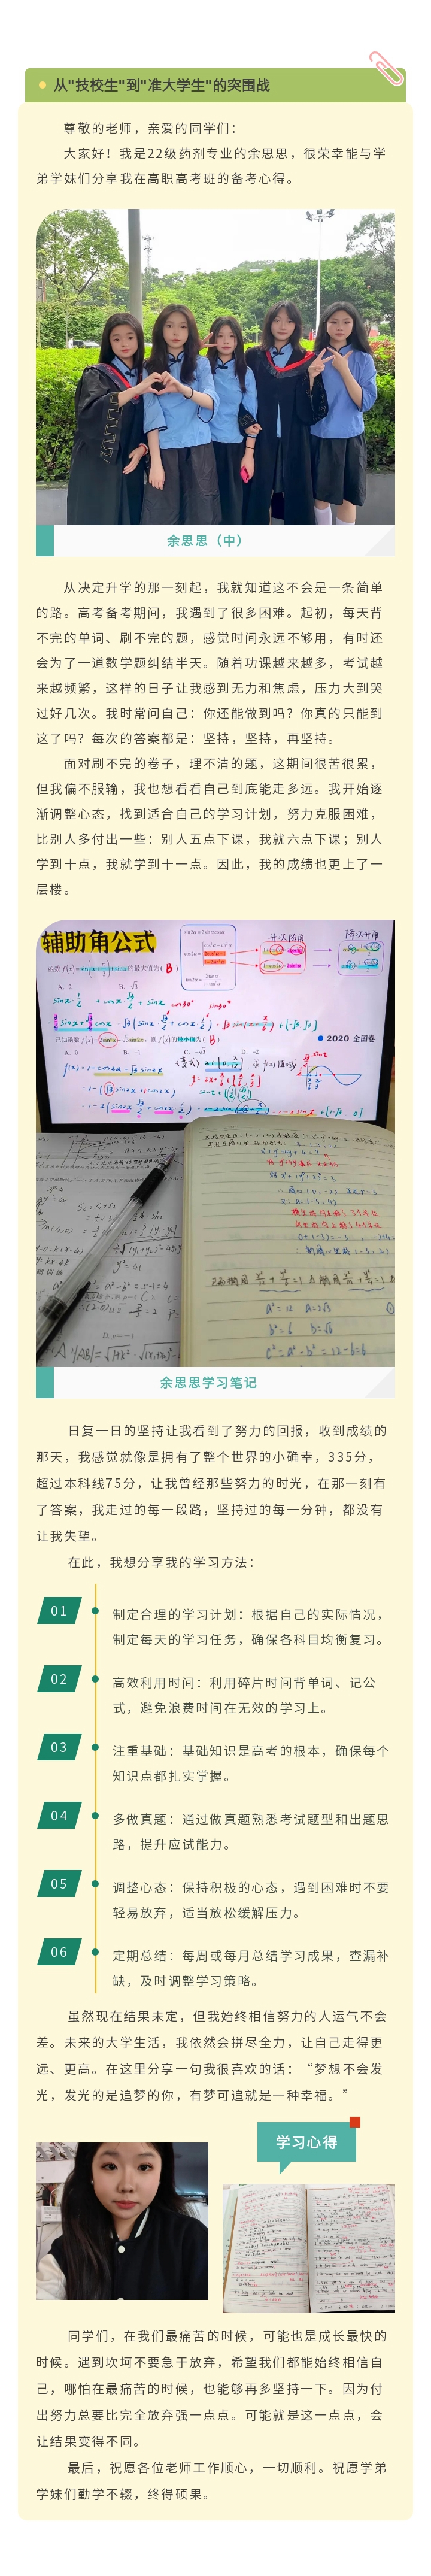 从"技校生"到"准大学生"的突围战
尊敬的老师，亲爱的同学们：
大家好！我是22级药剂专业的余思思，很荣幸能与学
弟学妹们分享我在高职高考班的备考心得。
余思思（中）
从决定升学的那一刻起，我就知道这不会是一条简单
的路。高考备考期间，我遇到了很多困难。起初，每天背
不完的单词、刷不完的题，感觉时间永远不够用，有时还
会为了一道数学题纠结半天。随着功课越来越多，考试越
来越频繁，这样的日子让我感到无力和焦虑，压力大到哭
过好几次。我时常问自己：你还能做到吗？你真的只能到
这了吗？每次的答案都是：坚持，坚持，再坚持。
面对刷不完的卷子，理不清的题，这期间很苦很累，
但我偏不服输，我也想看看自己到底能走多远。我开始逐
渐调整心态，找到适合自己的学习计划，努力克服困难，
比别人多付出一些：别人五点下课，我就六点下课；别人
学到十点，我就学到十一点。因此，我的成绩也更上了一
层楼。
辅助角公式
2020 全国卷
余思思学习笔记
日复一日的坚持让我看到了努力的回报，收到成绩的
那天，我感觉就像是拥有了整个世界的小确幸，335分，
超过本科线75分，让我曾经那些努力的时光，在那一刻有
了答案，我走过的每一段路，坚持过的每一分钟，都没有
让我失望。
在此，我想分享我的学习方法：
01
制定合理的学习计划：根据自己的实际情况，
制定每天的学习任务，确保各科目均衡复习。
02
高效利用时间：利用碎片时间背单词、记公
式，避免浪费时间在无效的学习上。
03
注重基础：基础知识是高考的根本，确保每个
知识点都扎实掌握。
04
多做真题：通过做真题熟悉考试题型和出题思
路，提升应试能力。
05
调整心态：保持积极的心态，遇到困难时不要
轻易放弃，适当放松缓解压力。
06
定期总结：每周或每月总结学习成果，查漏补
缺，及时调整学习策略。
虽然现在结果未定，但我始终相信努力的人运气不会
差。未来的大学生活，我依然会拼尽全力，让自己走得更
远、更高。在这里分享一句我很喜欢的话：“梦想不会发
光，发光的是追梦的你，有梦可追就是一种幸福。”
学习心得
同学们，在我们最痛苦的时候，可能也是成长最快的
时候。遇到坎坷不要急于放弃，希望我们都能始终相信自
己，哪怕在最痛苦的时候，也能够再多坚持一下。因为付
出努力总要比完全放弃强一点点。可能就是这一点点，会
让结果变得不同。
最后，祝愿各位老师工作顺心，一切顺利。祝愿学弟
学妹们勤学不辍，终得硕果。